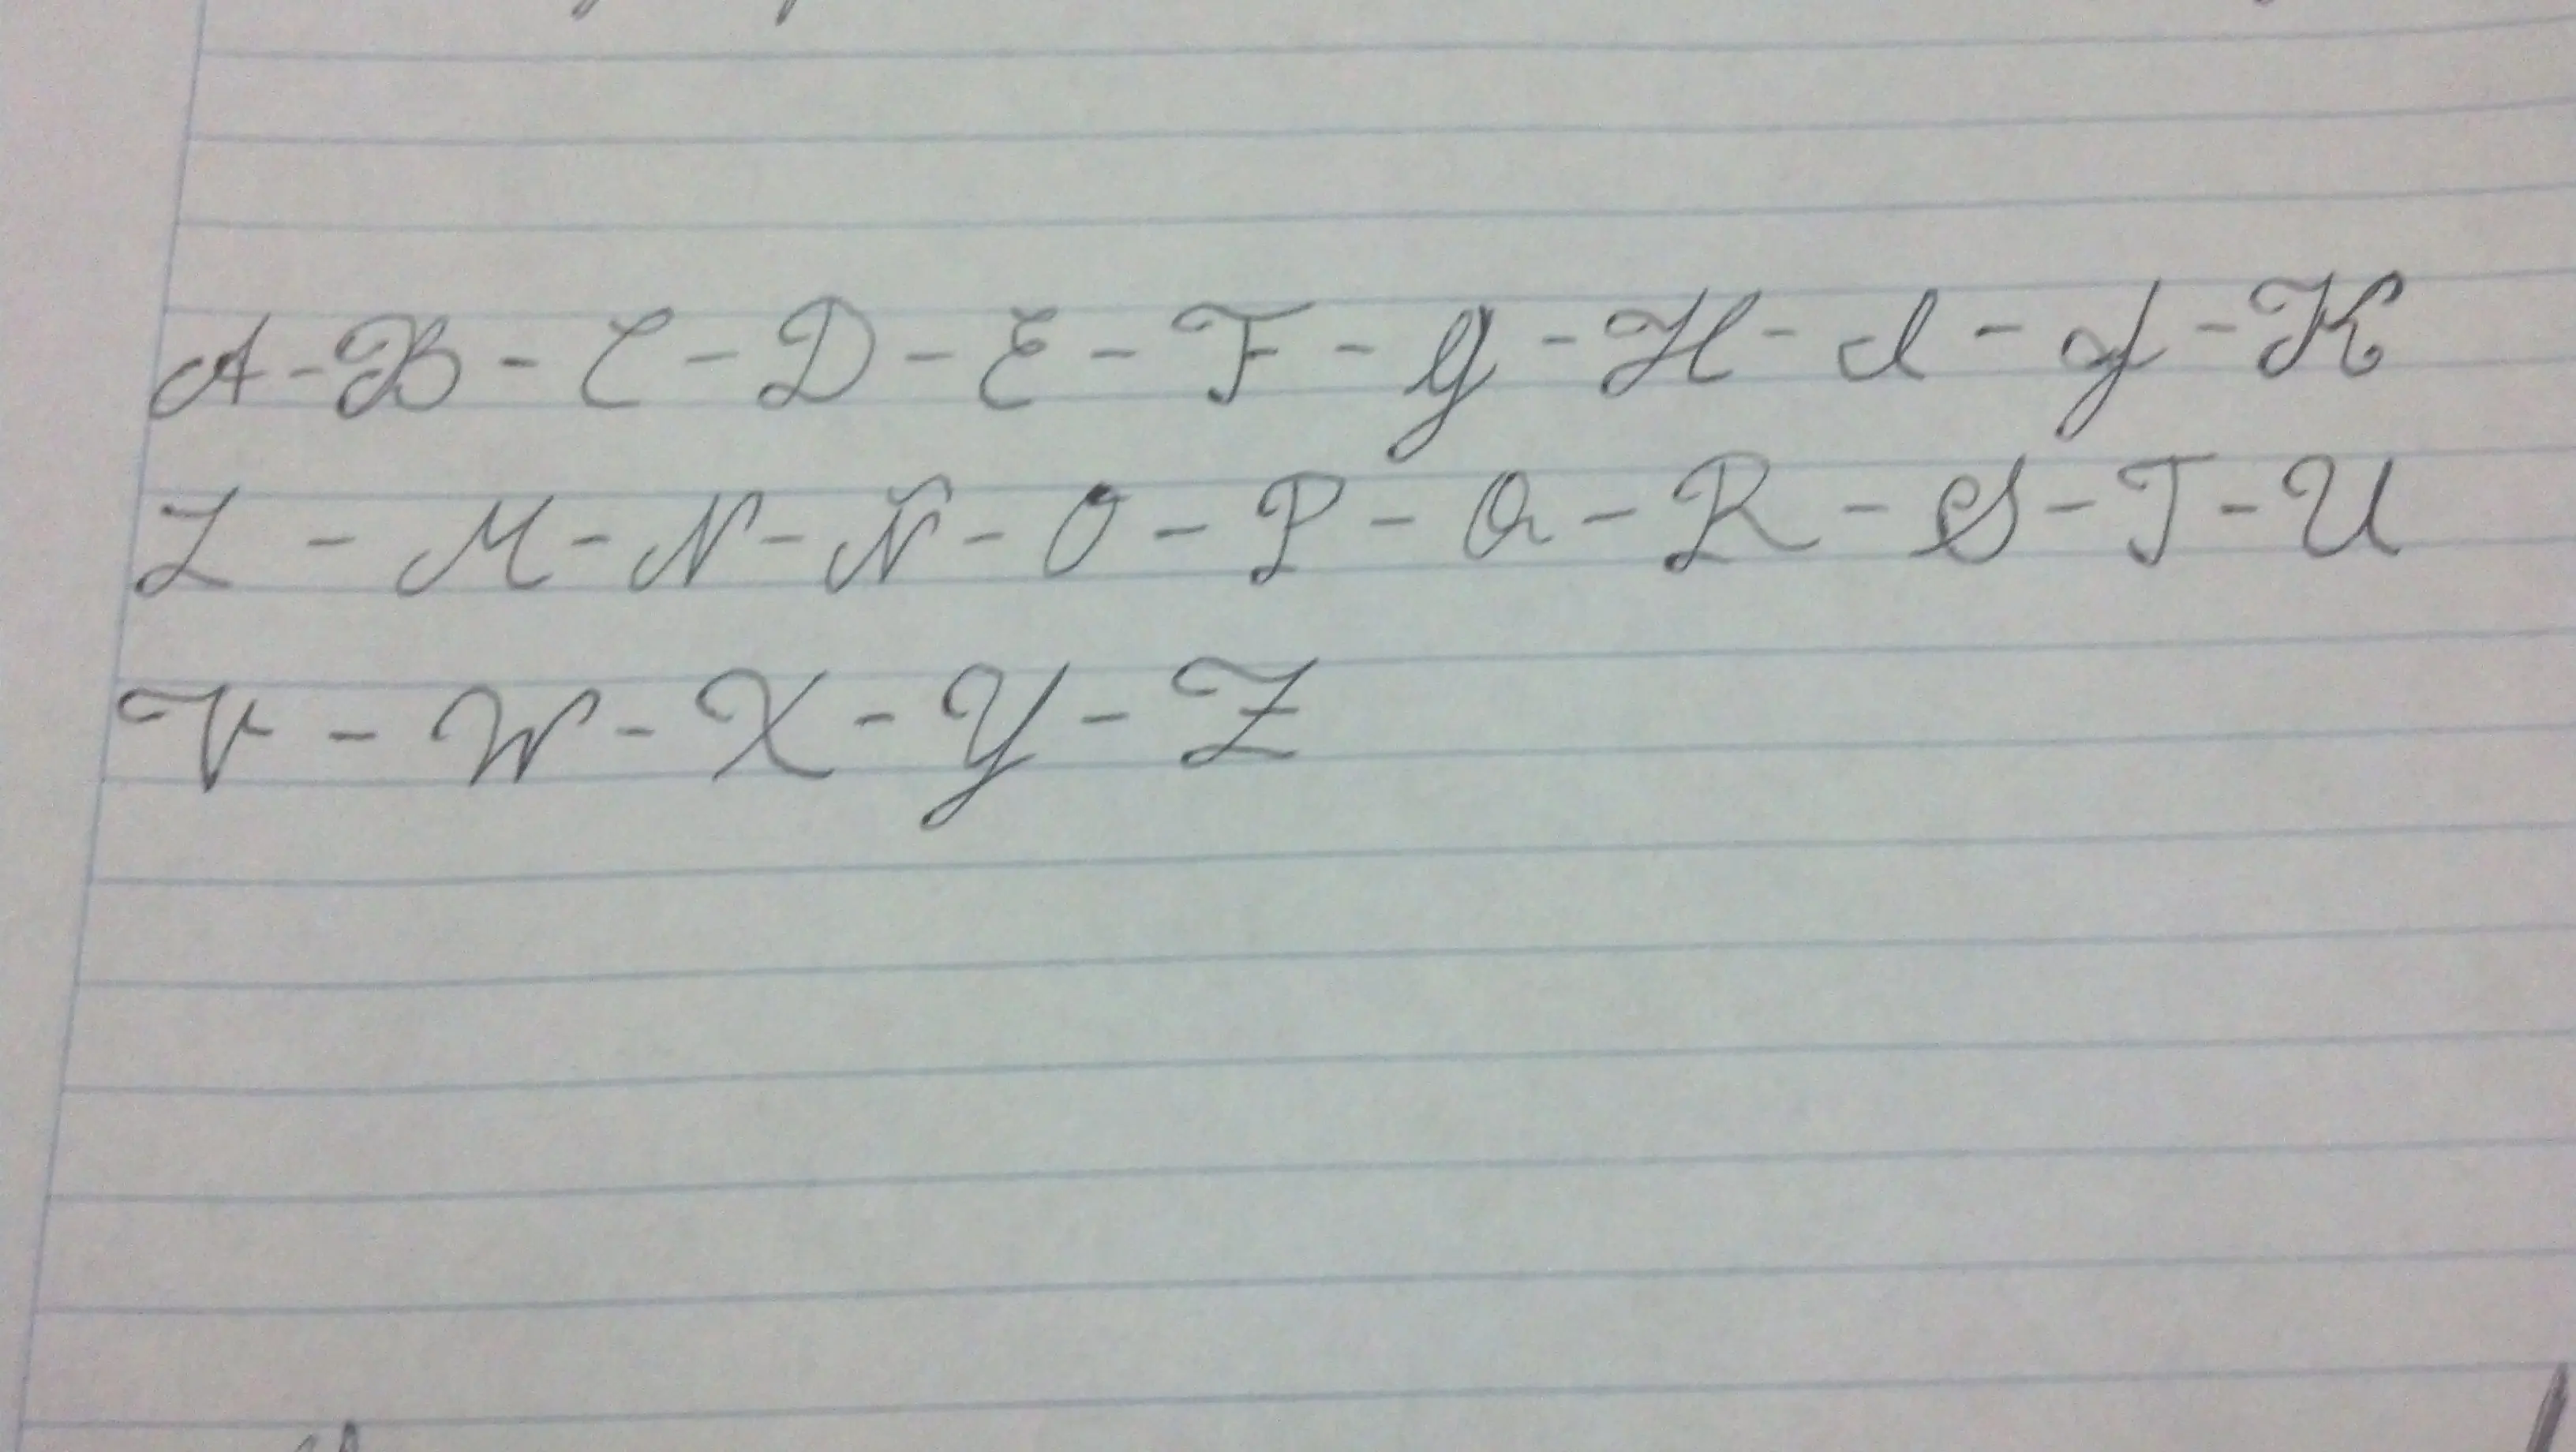 A - B - C - D - E - F - G - H - I - J - K
L - M - N - Ñ - O - P - Q - R - S - T - U
V - W - X - Y - Z